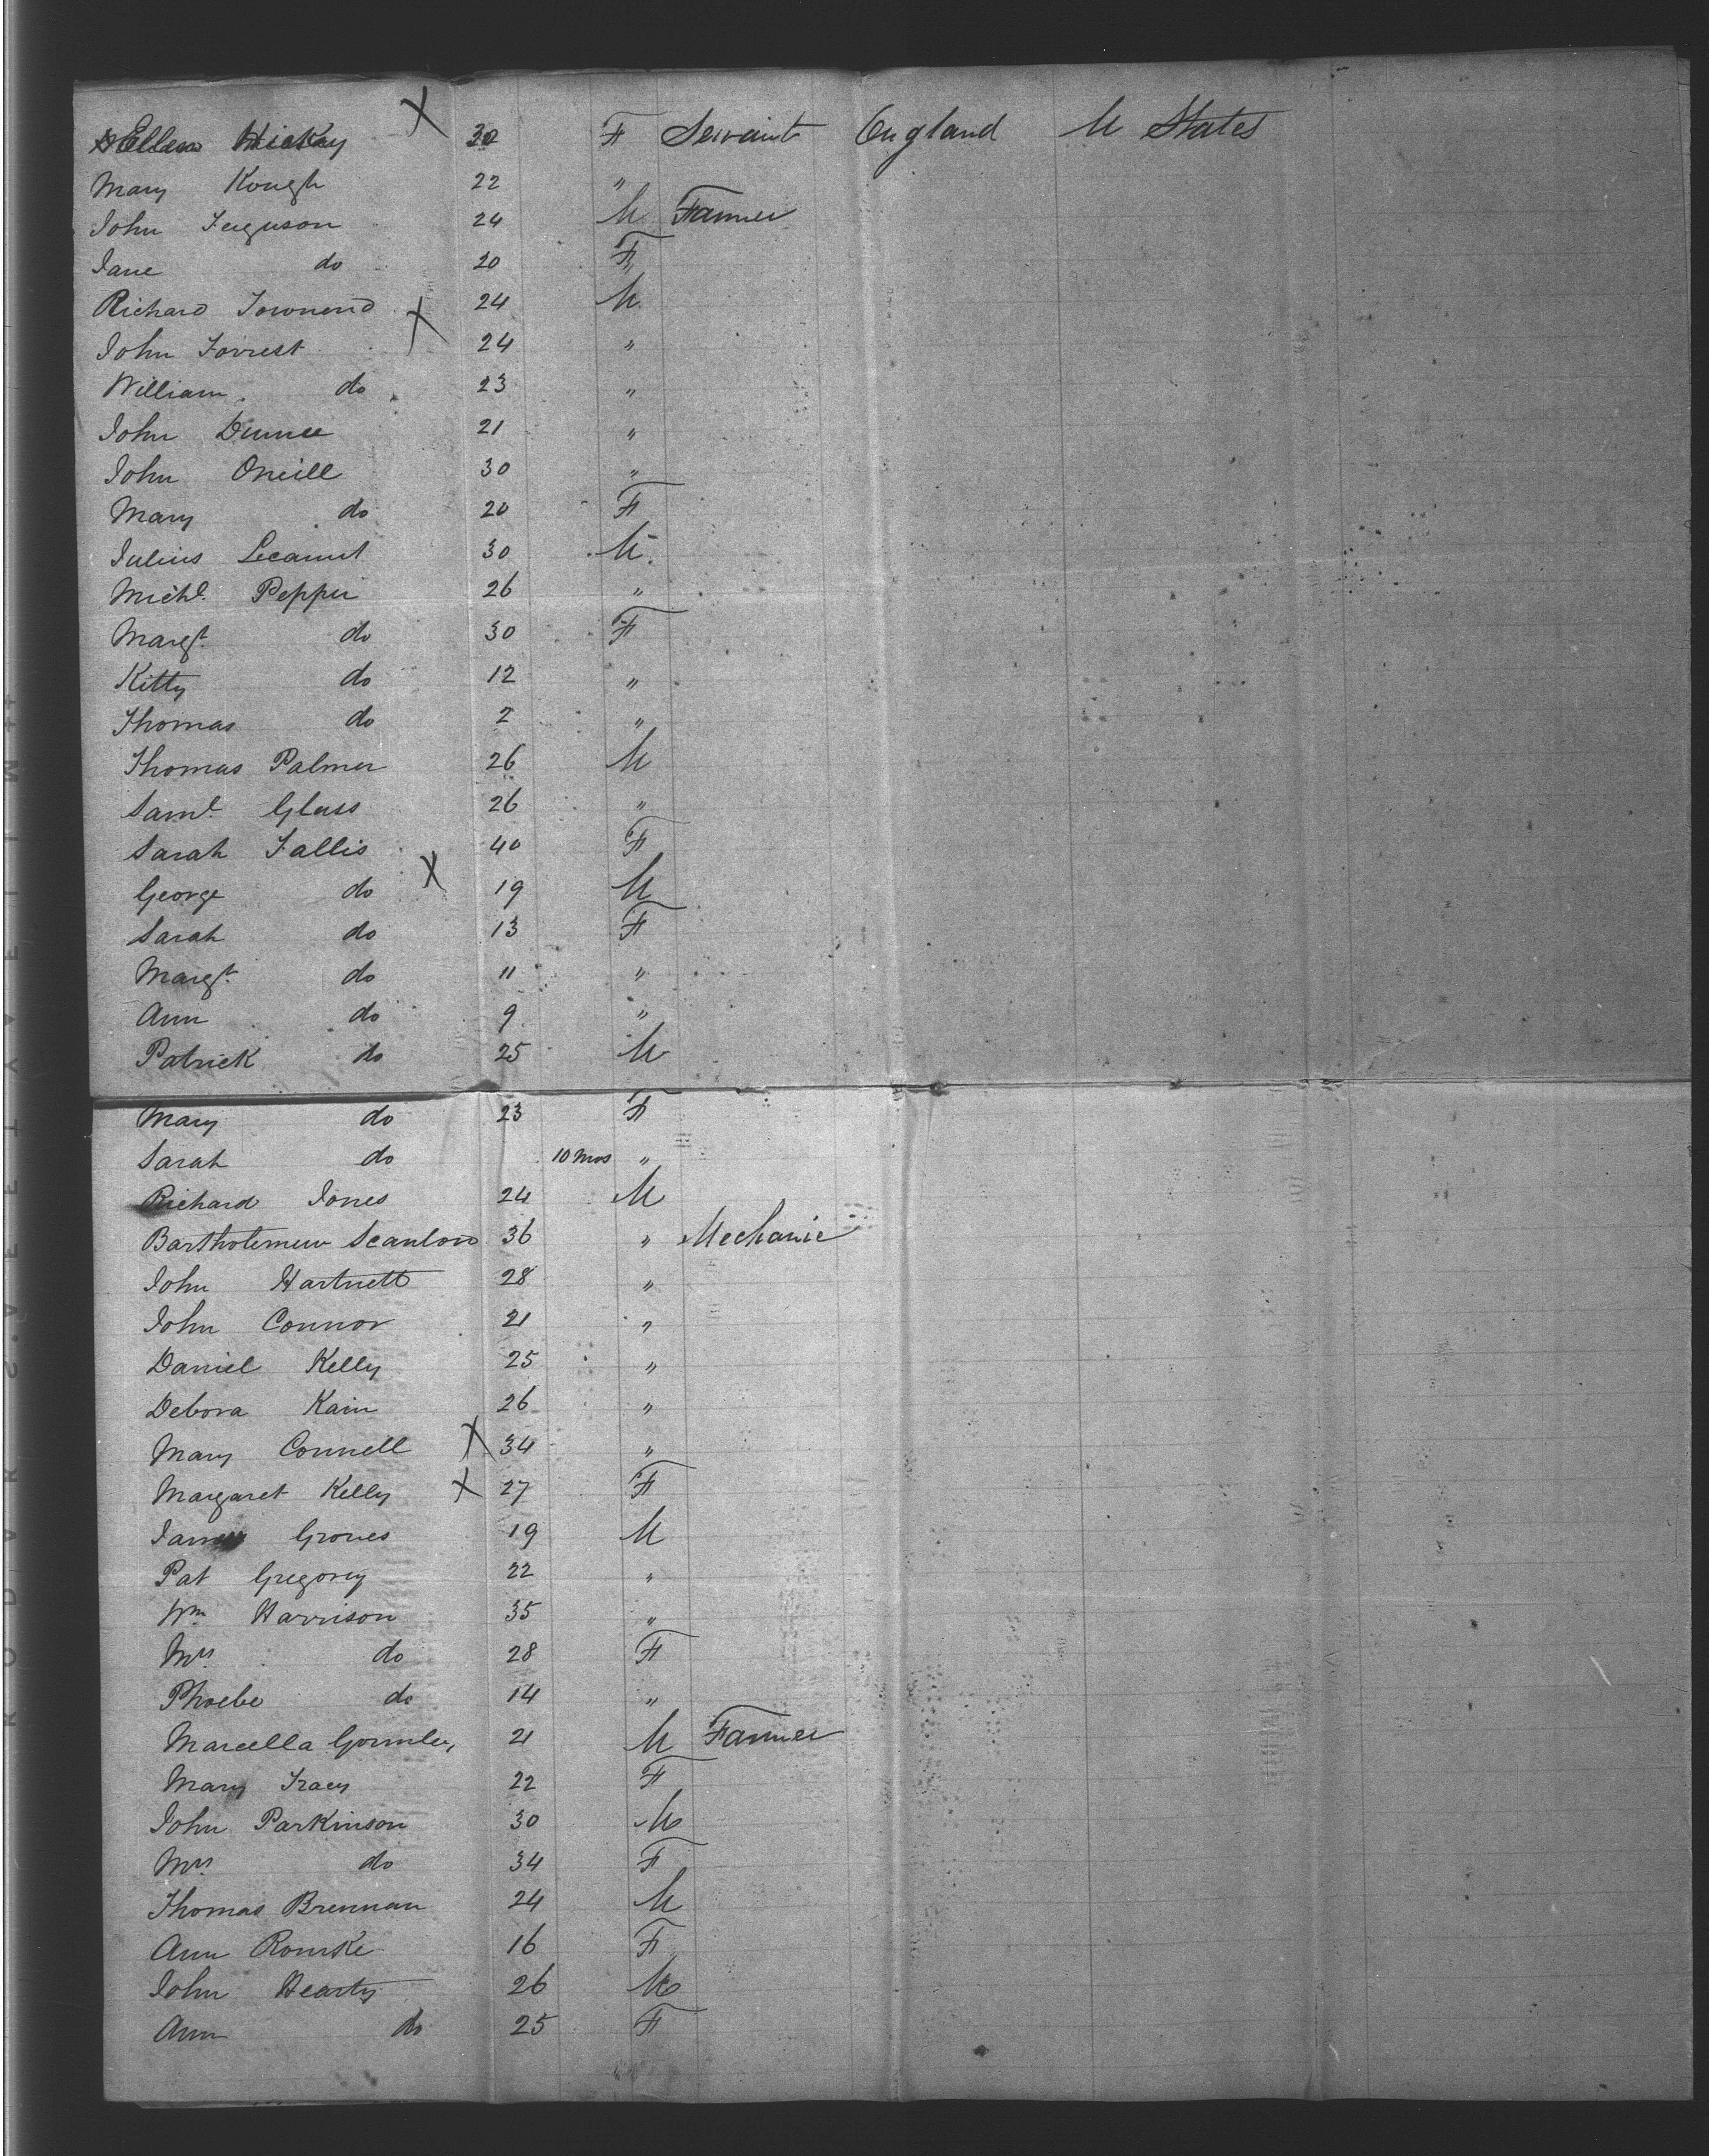 Ellen Hickey 30 F Servant England U States
Mary Kough 22 "
John Ferguson 24 M Farmer
Jane do 20 F
Richard Townend 24 M
John Forrest 24 "
William do 23 "
John Dunne 21 "
John Oneill 30 "
Mary do 20 F
Julius Lecamut 30 M
Michl Pepper 26 "
Margt do 30 F
Kitty do 12 "
Thomas do 2 "
Thomas Palmer 26 M
Saml Glass 26 "
Sarah Fallis 40 F
George do 19 M
Sarah do 13 F
Margt do 11 "
Ann do 9 "
Patrick do 25 M
Mary do 23 F
Sarah do 10 mos "
Richard Jones 24 M
Bartholemew Scanlon 36 " Mechanic
John Hartnett 28 "
John Connor 21 "
Daniel Kelly 25 "
Debora Kain 26 "
Mary Connell 34 "
Margaret Kelly 27 F
James Groves 19 M
Pat Gregory 22 "
Wm Harrison 35 "
Mrs do 28 F
Phoebe do 14 "
Marcella Gormley 21 M Farmer
Mary Tracy 22 F
John Parkinson 30 M
Mrs do 34 F
Thomas Brennan 24 M
Ann Rourke 16 F
John Hearty 26 M
Ann do 25 F